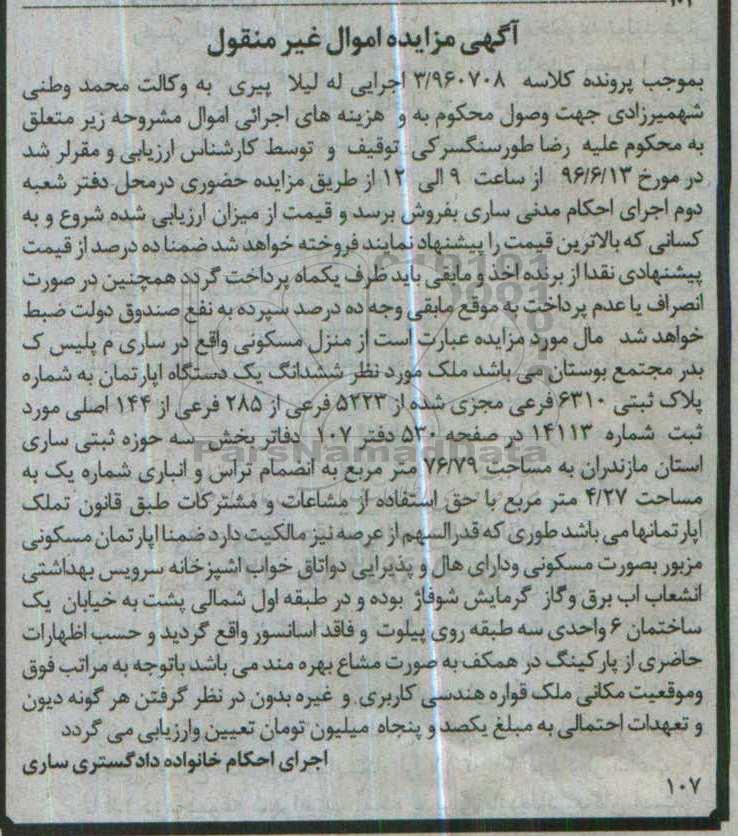 آگهی مزایده اموال غیر منقول
بموجب پرونده کلاسه ۳/۹۶۰۷۰۸ اجرایی له لیلا پیری به وکالت محمد وطنی
شهمیرزادی جهت وصول محکوم به و هزینه های اجرائی اموال مشروحه زیر متعلق
به محکوم علیه رضا طورسنگسرکی توقیف و توسط کارشناس ارزیابی و مقرلر شد
در مورخ ۹۶/۶/۱۳ از ساعت ۹ الی ۱۲ از طریق مزایده حضوری درمحل دفتر شعبه
دوم اجرای احکام مدنی ساری بفروش برسد و قیمت از میزان ارزیابی شده شروع و به
کسانی که بالاترین قیمت را پیشنهاد نمایند فروخته خواهد شد ضمنا ده درصد از قیمت
پیشنهادی نقدا از برنده اخذ و مابقی باید ظرف یکماه پرداخت گردد همچنین در صورت
انصراف یا عدم پرداخت به موقع مابقی وجه ده درصد سپرده به نفع صندوق دولت ضبط
خواهد شد مال مورد مزایده عبارت است از منزل مسکونی واقع در ساری م پلیس ک
بدر مجتمع بوستان می باشد ملک مورد نظر ششدانگ یک دستگاه اپارتمان به شماره
پلاک ثبتی ۶۳۱۰ فرعی مجزی شده از ۵۲۲۳ فرعی از ۲۸۵ فرعی از ۱۴۴ اصلی مورد
ثبت شماره ۱۴۱۱۳ در صفحه ۵۳۰ دفتر ۱۰۷ دفاتر بخش سه حوزه ثبتی ساری
ParsNamadData
استان مازندران به مساحت ۷۶/۷۹ متر مربع به انضمام تراس و انباری شماره یک به
مساحت ۴/۲۷ متر مربع با حق استفاده از مشاعات و مشترکات طبق قانون تملک
اپارتمانها می باشد طوری که قدرالسهم از عرصه نیز مالکیت دارد ضمنا اپارتمان مسکونی
مزبور بصورت مسکونی ودارای هال و پذیرایی دواتاق خواب اشپزخانه سرویس بهداشتی
انشعاب اب برق وگاز گرمایش شوفاژ بوده و در طبقه اول شمالی پشت به خیابان یک
ساختمان ۶ واحدی سه طبقه روی پیلوت و فاقد اسانسور واقع گردید و حسب اظهارات
حاضری از پارکینگ در همکف به صورت مشاع بهره مند می باشد باتوجه به مراتب فوق
وموقعیت مکانی ملک قواره هندسی کاربری و غیره بدون در نظر گرفتن هر گونه دیون
و تعهدات احتمالی به مبلغ یکصد و پنجاه میلیون تومان تعیین وارزیابی می گردد
اجرای احکام خانواده دادگستری ساری
۱۰۷